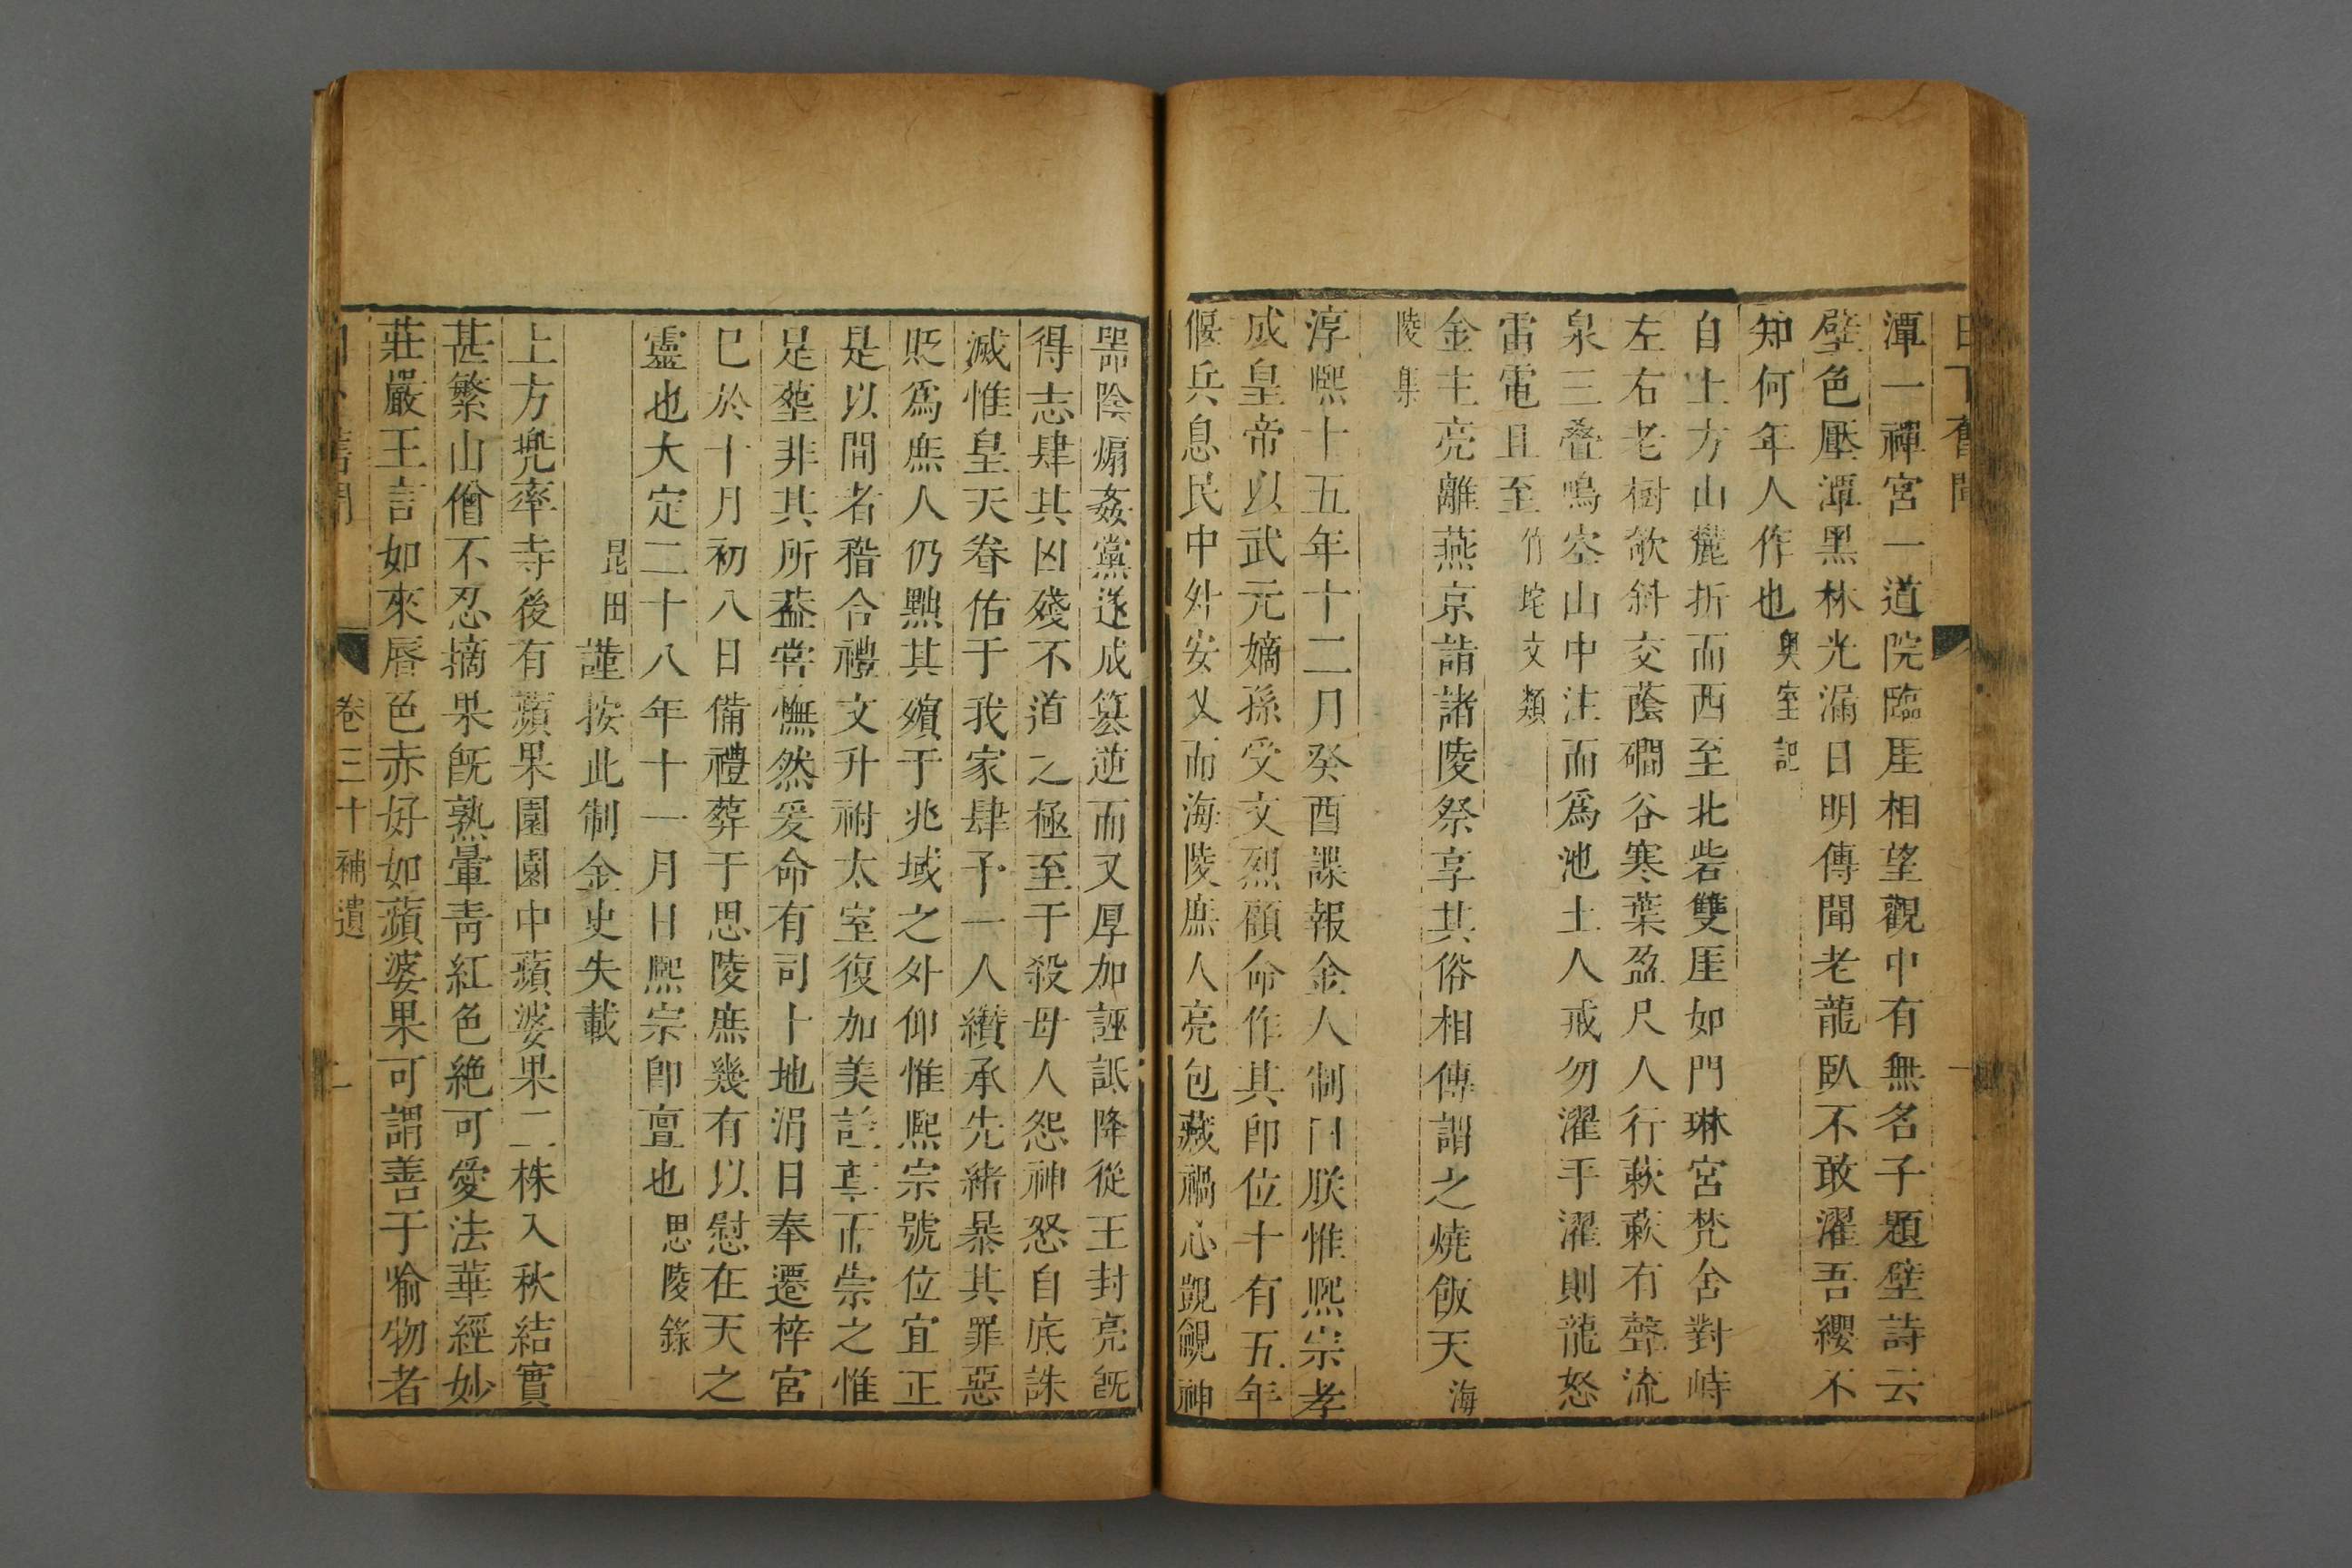 日下舊聞
潭一禪宮一道院臨厓相望觀中有無名子題壁詩云
壁色壓潭黑林光漏日明傳聞老龍臥不敢濯吾纓不
知何年人作也奥室記
自上方山麓折而西至北砦雙厓如門琳宮梵舍對峙
左右老樹欹斜交蔭磵谷寒葉盈尺人行蔌蔌有聲流
泉三疊鳴空山中注而爲池土人戒勿濯手濯則龍怒
雷電且至竹垞文類
金主亮離燕京詣諸陵祭享其俗相傳謂之燒飯天海
陵集
淳熙十五年十二月癸酉諜報金人制曰朕惟熙宗孝
成皇帝以武元嫡孫受文烈顧命作其卽位十有五年
偃兵息民中外安乂而海陵庶人亮包藏禍心覬覦神
器陰煽姦黨遂成簒逆而又厚加誣詆降從王封亮旣
得志肆其凶殘不道之極至于殺母人怨神怒自底誅
滅惟皇天眷佑于我家肆予一人纘承先緒暴其罪惡
貶爲庶人仍黜其殯于兆域之外仰惟熙宗號位宜正
是以間者稽合禮文升祔太室復加美諡尊而崇之惟
是塟非其所葢嘗憮然爰命有司卜地涓日奉遷梓宮
巳於十月初八日備禮葬于思陵庶幾有以慰在天之
靈也大定二十八年十一月日熙宗卽亶也思陵錄
昆田謹按此制金史失載
上方兜率寺後有蘋果園園中蘋婆果二株入秋結實
甚繁山僧不忍摘果旣熟暈靑紅色絶可愛法華經妙
莊嚴王言如來唇色赤好如蘋婆果可謂善于喻物者
卷三十補遺 二